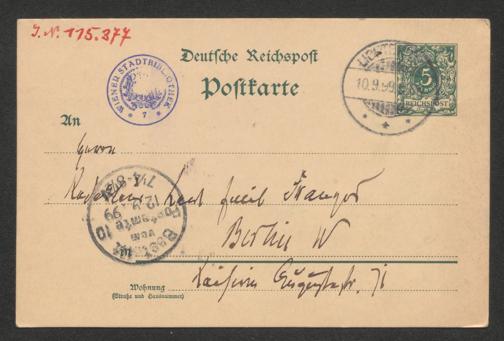 J. N. 115.377
Deutsche Reichspost
Postkarte
WIENER STADTBIBLIOTHEK
* 7 *
10.9.99
5
REICHSPOST
An
Herrn
Karl Emil Franzos
Berlin W
Kaiserin Augustastr. 71
Bestellt
vom
Postamte 10
12.9.99
7¼-8½V
Wohnung
(Straße und Hausnummer)